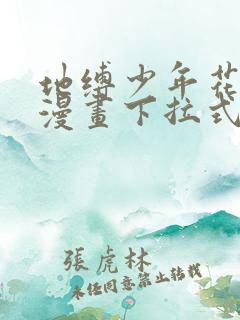 地缚少年花
漫畫下拉式
張虎林
未经同意禁止转载